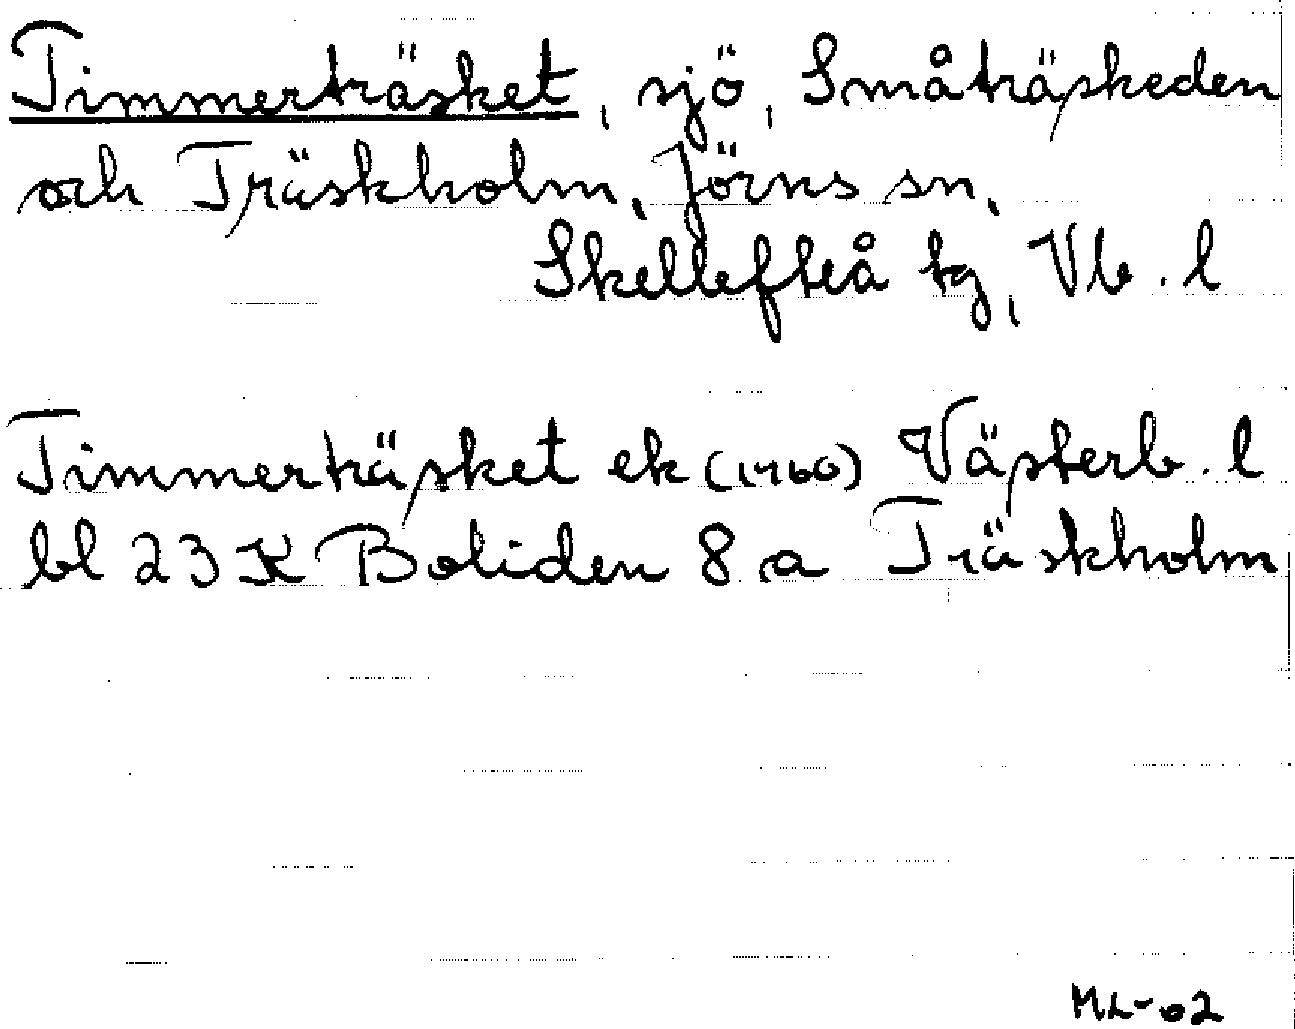 Timmerträsket, sjö, Småträskeden
och Träskholm, Jörns sn,
Skellefteå tg, Vb. l
Timmerträsket ek (1960) Västerb. l
bl 23 K Boliden 8 a Träskholm
ML-02